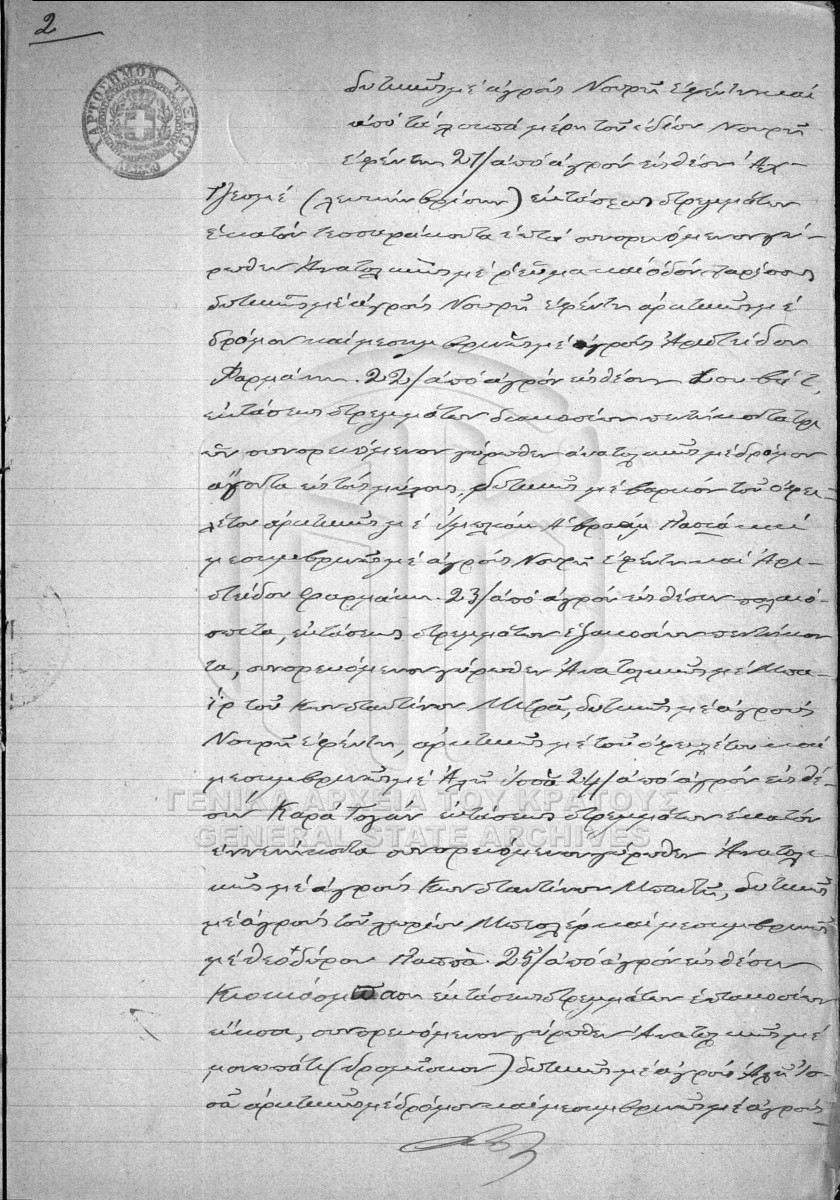 2
ΧΑΡΤΟΣΗΜΟΝ ΤΑΞΕΩΣ
δυτικῶς μὲ ἀγροὺς Νουρῆ ἐφέντη καὶ
ἀπὸ τὰ λοιπὰ μέρη τοῦ ἰδίου Νουρῆ
ἐφέντη 21/ ἀπὸ ἀγρὸν εἰς θέσιν
(λευκὴν βρύσιν) ἐκτάσεως στρεμμάτων
ἑκατὸν τεσσαράκοντα ἑπτὰ συνορευόμενον γύ-
ρωθεν Ἀνατολικῶς μὲ ρεῦμα καὶ ὁδὸν
δυτικῶς μὲ ἀγροὺς Νουρῆ ἐφέντη ἀρκτικῶς μὲ
δρόμον καὶ μεσημβρινῶς μὲ ἀγροὺς Ἀριστείδου
Φαρμάκη. 22/ ἀπὸ ἀγρὸν εἰς θέσιν
ἐκτάσεως στρεμμάτων διακοσίων πεντήκοντα τρι-
ῶν συνορευόμενον γύρωθεν ἀνατολικῶς μὲ δρόμον
ἄγοντα εἰς τοὺς μύλους, δυτικῶς μὲ βαρκὸν τοῦ ὀφει-
λέτου ἀρκτικῶς μὲ Ἀβραὰμ Πασιᾶ καὶ
μεσημβρινῶς μὲ ἀγροὺς Νουρῆ ἐφέντη καὶ Ἀρι-
στείδου Φαρμάκη. 23/ ἀπὸ ἀγρὸν εἰς θέσιν παλαιό-
σπιτα, ἐκτάσεως στρεμμάτων ἑξακοσίων πεντήκον-
τα, συνορευόμενον γύρωθεν Ἀνατολικῶς μὲ Μπα-
ῒρ τοῦ Κωνσταντίνου Μήτρα, δυτικῶς μὲ ἀγροὺς
Νουρῆ ἐφέντη, ἀρκτικῶς μὲ τοῦ ὀφειλέτου καὶ
μεσημβρινῶς μὲ Ἀλῆ Ἰσσᾶ 24/ ἀπὸ ἀγρὸν εἰς θέ-
σιν Καρὰ Τογὰν ἐκτάσεως στρεμμάτων ἑκατὸν
ἐννενήκοντα συνορευόμενον γύρωθεν Ἀνατολι-
κῶς μὲ ἀγροὺς Κωνσταντίνου δυτικῶς
μὲ ἀγροὺς τοῦ χωρίου Μπεσλὲρ καὶ μεσημβρινῶς
μὲ Θεόδωρον Παππᾶ. 25/ ἀπὸ ἀγρὸν εἰς θέσιν
ἐκτάσεως στρεμμάτων ἑπτακοσίων
εἴκοσι, συνορευόμενον γύρωθεν Ἀνατολικῶς μὲ
μονοπάτι (δρομίσκον) δυτικῶς μὲ ἀγροὺς Ἀλῆ Ἰσ-
σᾶ ἀρκτικῶς μὲ δρόμον καὶ μεσημβρινῶς μὲ ἀγροὺς
ΓΕΝΙΚΑ ΑΡΧΕΙΑ ΤΟΥ ΚΡΑΤΟΥΣ
GENERAL STATE ARCHIVES